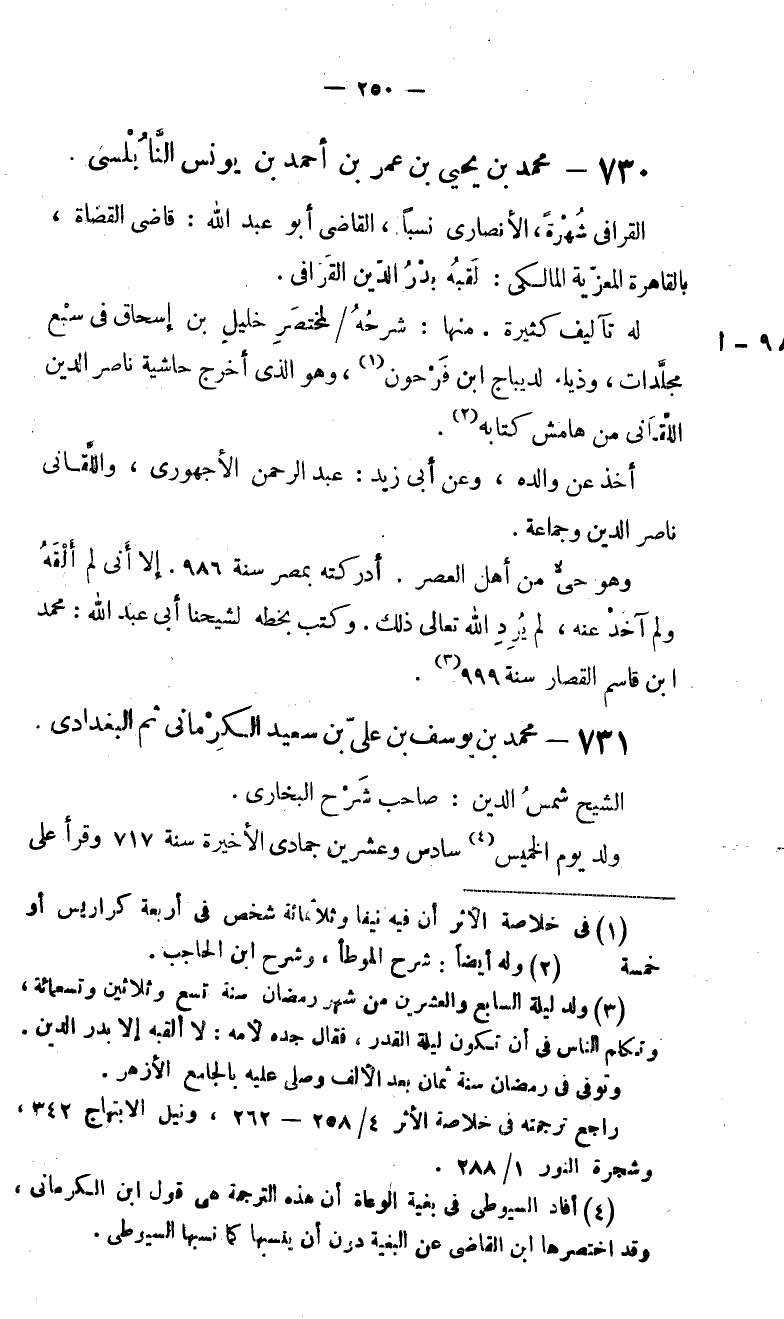 — ٢٥٠ —
٧٣٠ — محمد بن يحيي بن عمر بن أحمد بن يونس النَّابُلْسى .
القرافى شُهْرَةً، الأنصارى نسباً، القاضى أبو عبد الله : قاضى القضاة ،
بالقاهرة المعزّية المالكى : لَقَبهُ بدْرُ الدّين القَرَافى .
له تآليف كثيرة . منها : شرحُهُ/ لمختصَرِ خليلٍ بن إسحاق فى سبْع
٩٨ - ا
مجلَّدات ، وذيله لديباج ابن فَرْحون(١) ، وهو الذى أخرج حاشية ناصر الدين
اللّقانى من هامش كتابه(٢) .
أخذ عن والده ، وعن أبى زيد : عبد الرحمن الأجهورى ، واللَّقانى
ناصر الدين وجماعة .
وهو حىٌّ من أهل العصر . أدركته بمصر سنة ٩٨٦ . إلا أَنى لم أَلْقَهُ
ولم آخذْ عنه ، لم يُرِدِ اللّه تعالى ذلك . وكتب بخطه لشيخنا أبى عبد الله : محمد
ابن قاسم القصار سنة ٩٩٩(٣) .
٧٣١ — محمد بن يوسف بن علىّ بن سعيد الكرِْمانى ثم البغدادى .
الشيخ شمسُ الدين : صاحب شَرْح البخارى .
ولد يوم الخميس(٤) سادس وعشرين جمادى الأخيرة سنة ٧١٧ وقرأ على
(١) فى خلاصة الأثر أن فيه نيفا وثلاثمائة شخص فى أربعة كراريس أو
خمسة (٢) وله أيضاً : شرح الموطأ ، وشرح ابن الحاجب .
(٣) ولد ليلة السابع والعشرين من شهر رمضان سنة تسع وثلاثين وتسعمائة ،
وتكلم الناس فى أن تكون ليلة القدر ، فقال جده لأمه : لا ألقبه إلا بدر الدين .
وتوفى فى رمضان سنة ثمان بعد الألف وصلى عليه بالجامع الأزهر .
راجع ترجمته فى خلاصة الأثر ٤/ ٢٥٨ — ٢٦٢ ، ونيل الابتهاج ٣٤٢ ،
وشجرة النور ١/ ٢٨٨ .
(٤) أفاد السيوطى فى بغية الوعاة أن هذه الترجمة هى قول ابن الكرمانى ،
وقد اختصرها ابن القاضى عن البغية درن أن ينسبها كما نسبها السيوطى .